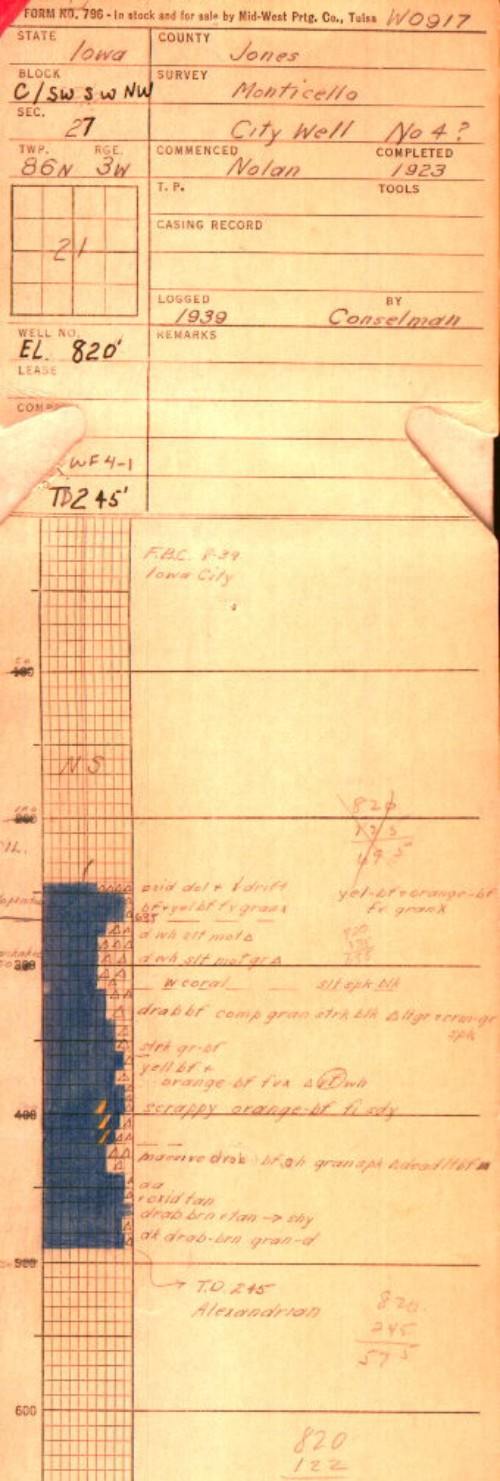 FORM NO. 796 - In stock and for sale by Mid-West Prtg. Co., Tulsa W0917
STATE Iowa COUNTY Jones
BLOCK C/SW SW NW SURVEY Monticello
SEC. 27 City Well No 4?
TWP. 86N RGE. 3W COMMENCED Nolan COMPLETED 1923
T. P. TOOLS
21
CASING RECORD
LOGGED 1939 BY Conselman
WELL NO. EL. 820' REMARKS
LEASE
WF4-1
TD 245'
F.B.C. 8-39
Iowa City
100
N S
200
820
oxid dol + drift
yel-bf + orange-bf
bf + yel bf fv gran x
fv gran x
635
d wh slt mot Δ
d wh slt mot gr Δ
300
w coral slt spk blk
drab bf comp gran strk blk Δ ltgr + crm-gr
spk
strk gr-bf
yell bf +
orange-bf fvx Δ wh
400
scrappy orange-bf fi sdy
massive drab bf gran spk Δ dead
aa
oxid tan
drab brn + tan → shy
dk drab-brn gran-d
500
T.D. 245
Alexandrian
820
245
575
600
820
122